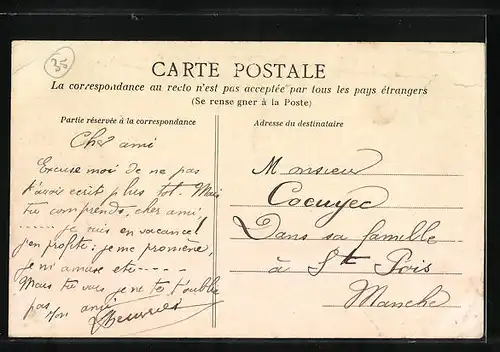 35
CARTE POSTALE
La correspondance au recto n'est pas acceptée par tous les pays étrangers
(Se rense gner à la Poste)
Partie réservée à la correspondance
Adresse du destinataire
Cher ami
Excuse moi de ne pas
t'avoir ecrit plus tot. Mais
tu comprends, cher ami,
----- je suis en vacances
j'en profite: je me promène,
je m'amuse etc -----
Mais tu vois je ne te t'oublie
pas
Ton ami
Monsieur
Dans sa famille
à St Pois
Manche